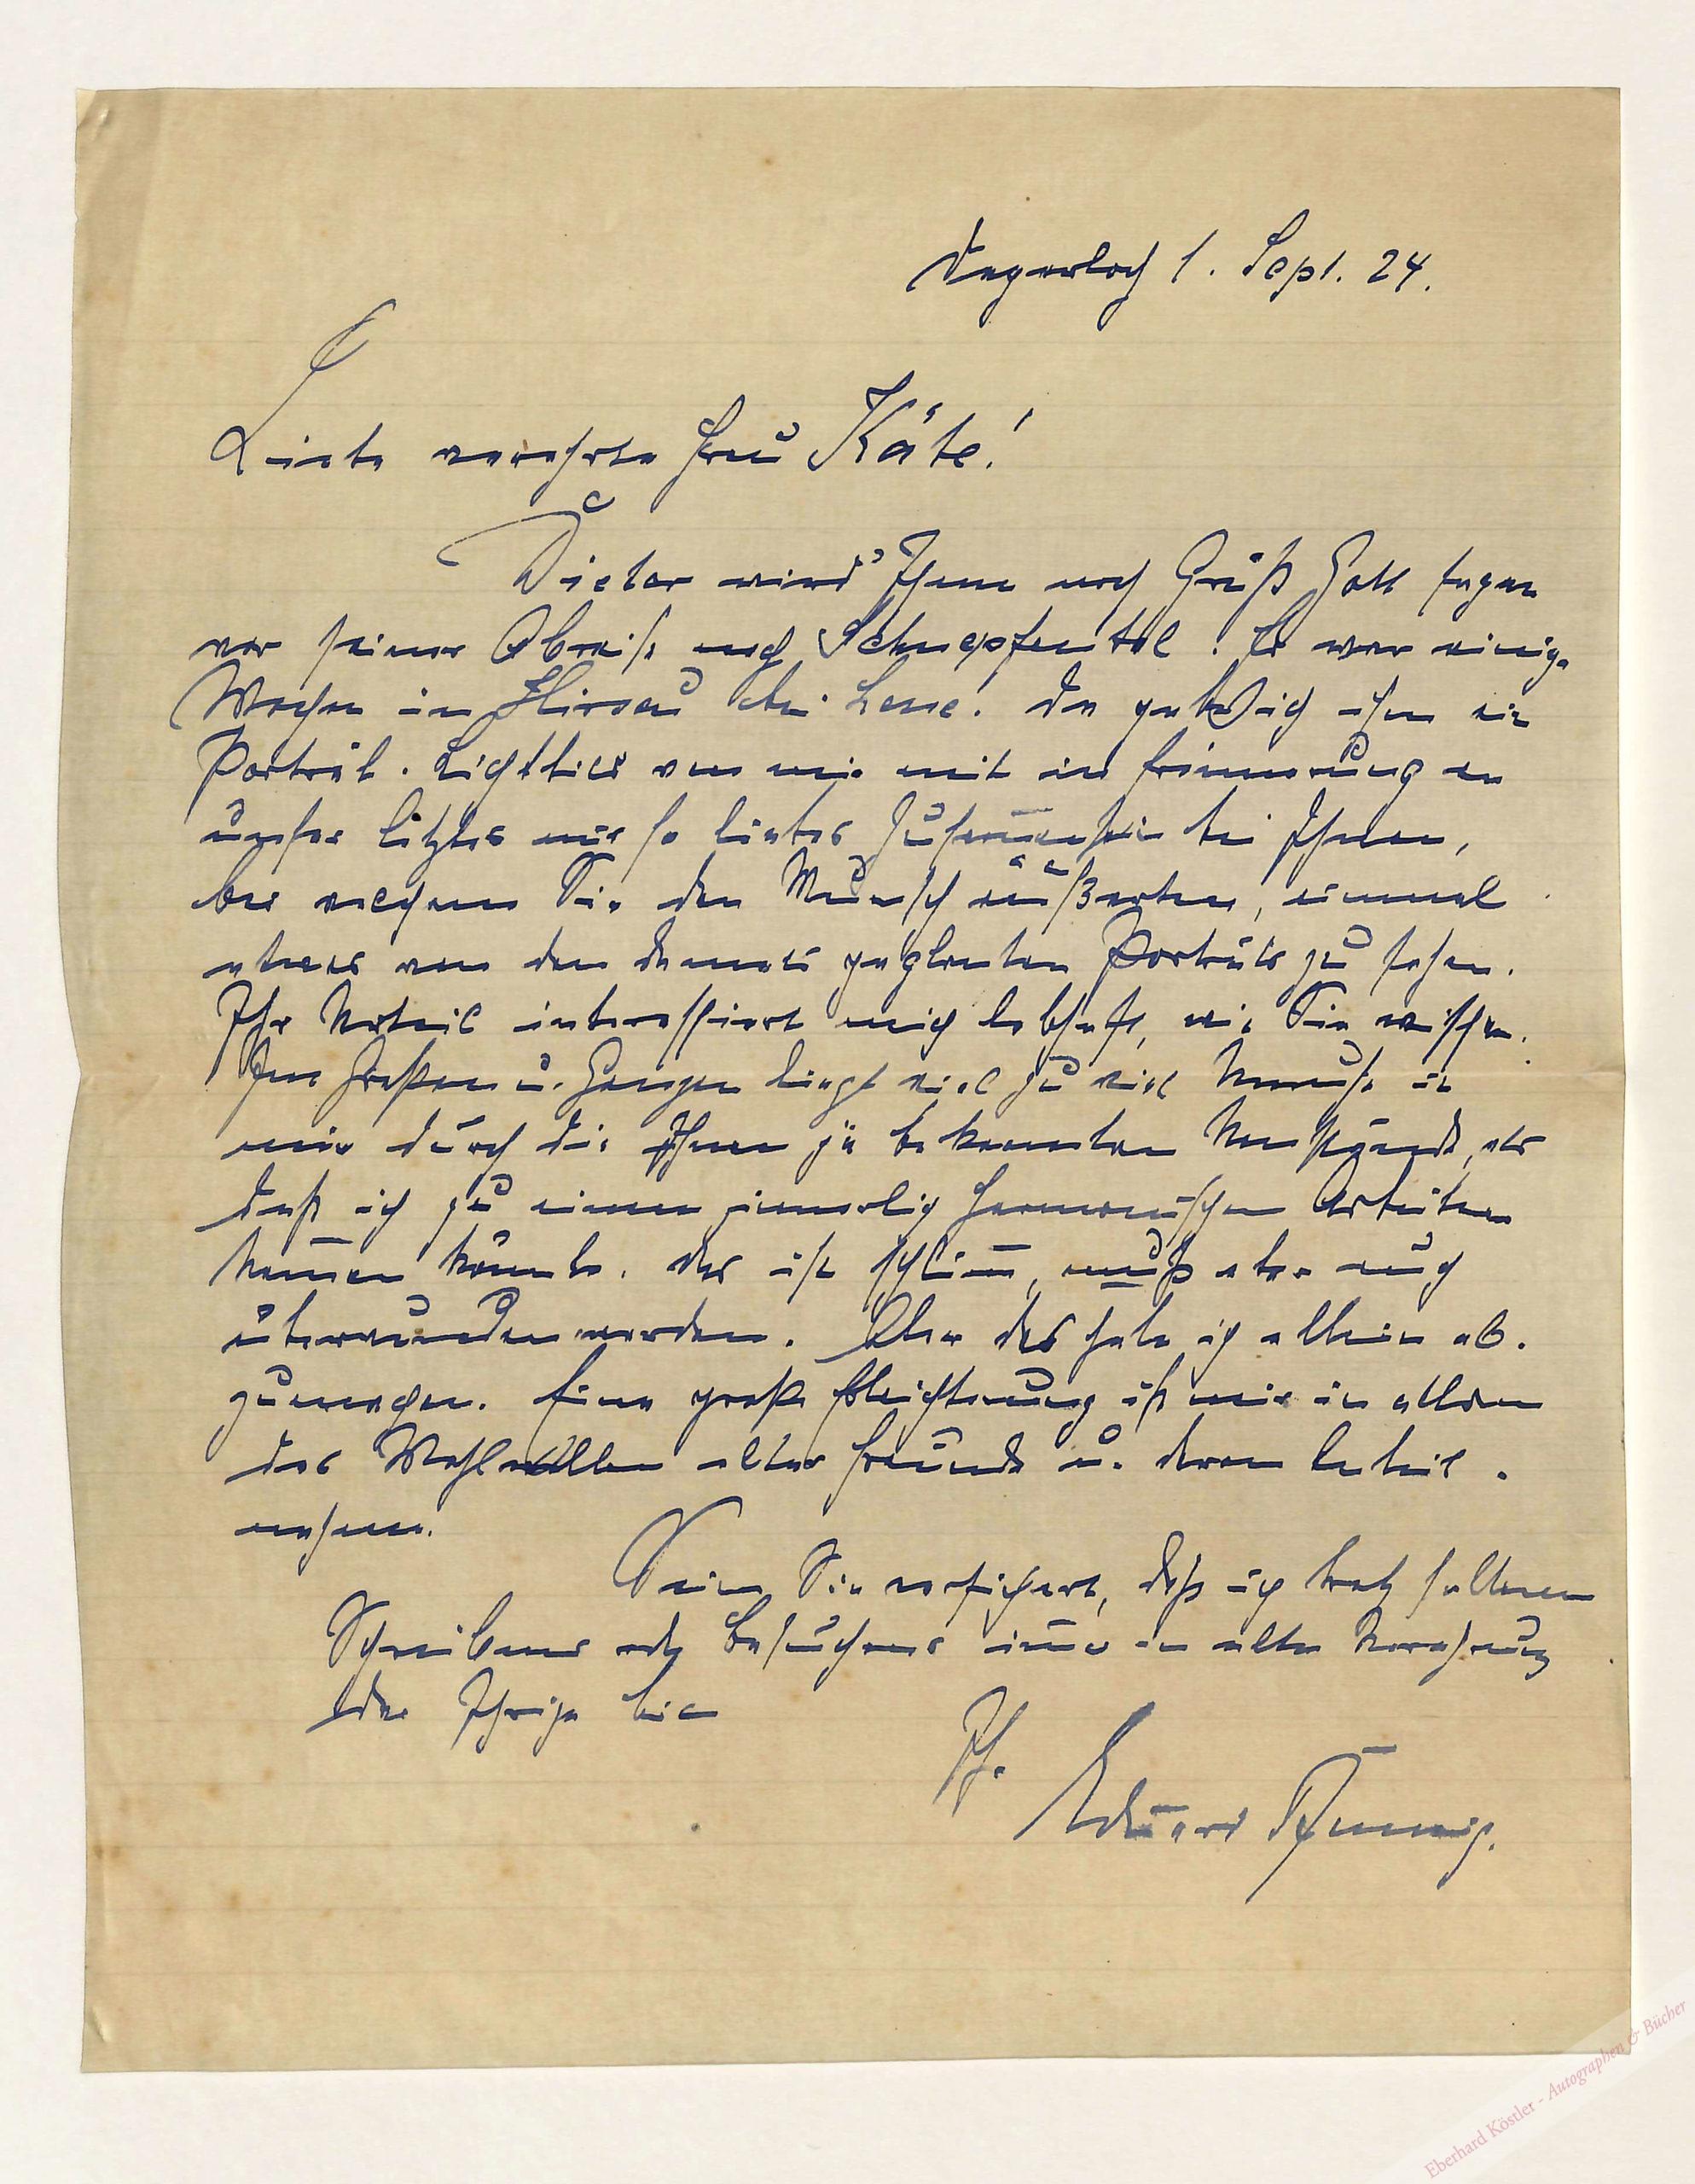 Degerloch 1. Sept. 24.
Liebe verehrte Frau Käte!
Dieter wird Ihnen noch Grüß Gott sagen
vor seiner Abreise nach Schnepfental! Er war einige
Wochen in Hirsau bei Lene! Da gebe ich ihm ein
Porträt-Lichtbild von mir mit in Erinnerung an
unser letztes mir so liebes Zusammensein bei Ihnen,
bei welchem Sie den Wunsch äußerten, einmal
etwas von den damals geplanten Porträts zu sehen.
Ihr Urteil interessiert mich lebhaft, wie Sie wissen.
Im Großen u. Ganzen liegt viel zu viel Unruhe in
mir durch die Ihnen ja bekannten Umstände, als
daß ich zu einem innerlich harmonischen Arbeiten
kommen könnte. Das ist schlimm, muß aber auch
überwunden werden. Aber das habe ich allein ab-
zumachen. Eine große Erleichterung ist mir in alldem
das Wohlwollen alter Freunde u. deren Anteil-
nahme.
Seien Sie versichert, daß ich trotz seltenen
Schreibens oder Besuchens immer in alter Verehrung
der Ihrige bin
Ihr
Eduard
Eberhard Köstler - Autographen & Bücher